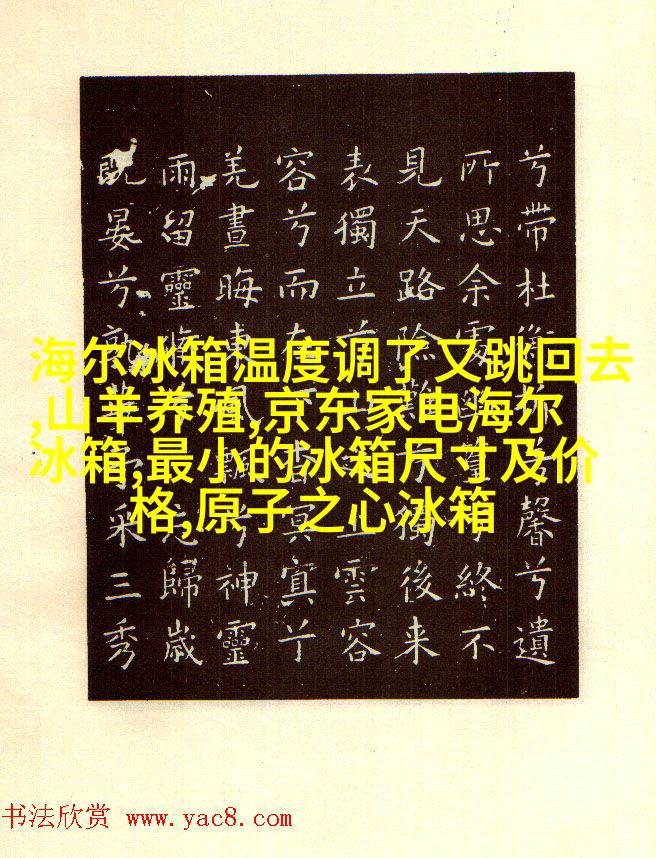 海尔冰箱温度调了又跳回去
,山羊养殖,京东家电海尔
冰箱,最小的冰箱尺寸及价
格,原子之心冰箱
兮帶杜衡馨兮遺
所思余處終不
見天路險難獨後来
表獨立雲容
容兮而在冥冥兮
羌晝晦東風飄兮神靈
雨留靈歸歲
既晏兮孰采三秀
书法欣赏 www.yac8.com